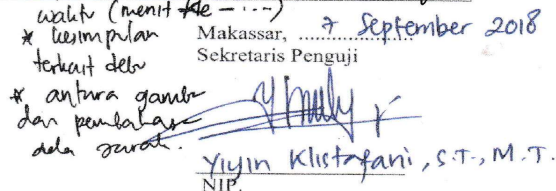 waktu (menit ke - ....)
* kesimpulan
terkait debu
* antara gambar
dan pembahasan
ada
Makassar, 7 September 2018
Sekretaris Penguji
Yiyin Klistafani, S.T., M.T.
NIP.